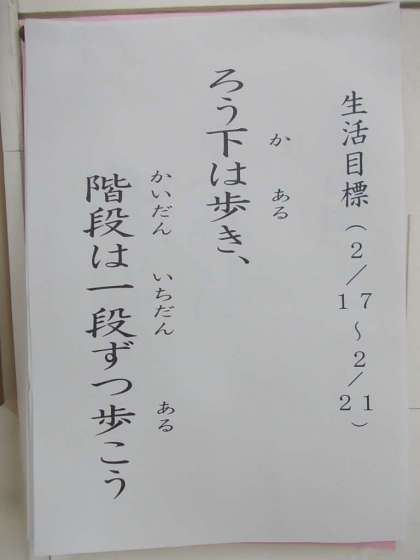 生活目標(2/17~2/21)
ろう下は歩き、
か ある
階段は一段ずつ歩こう
かいだん いちだん ある